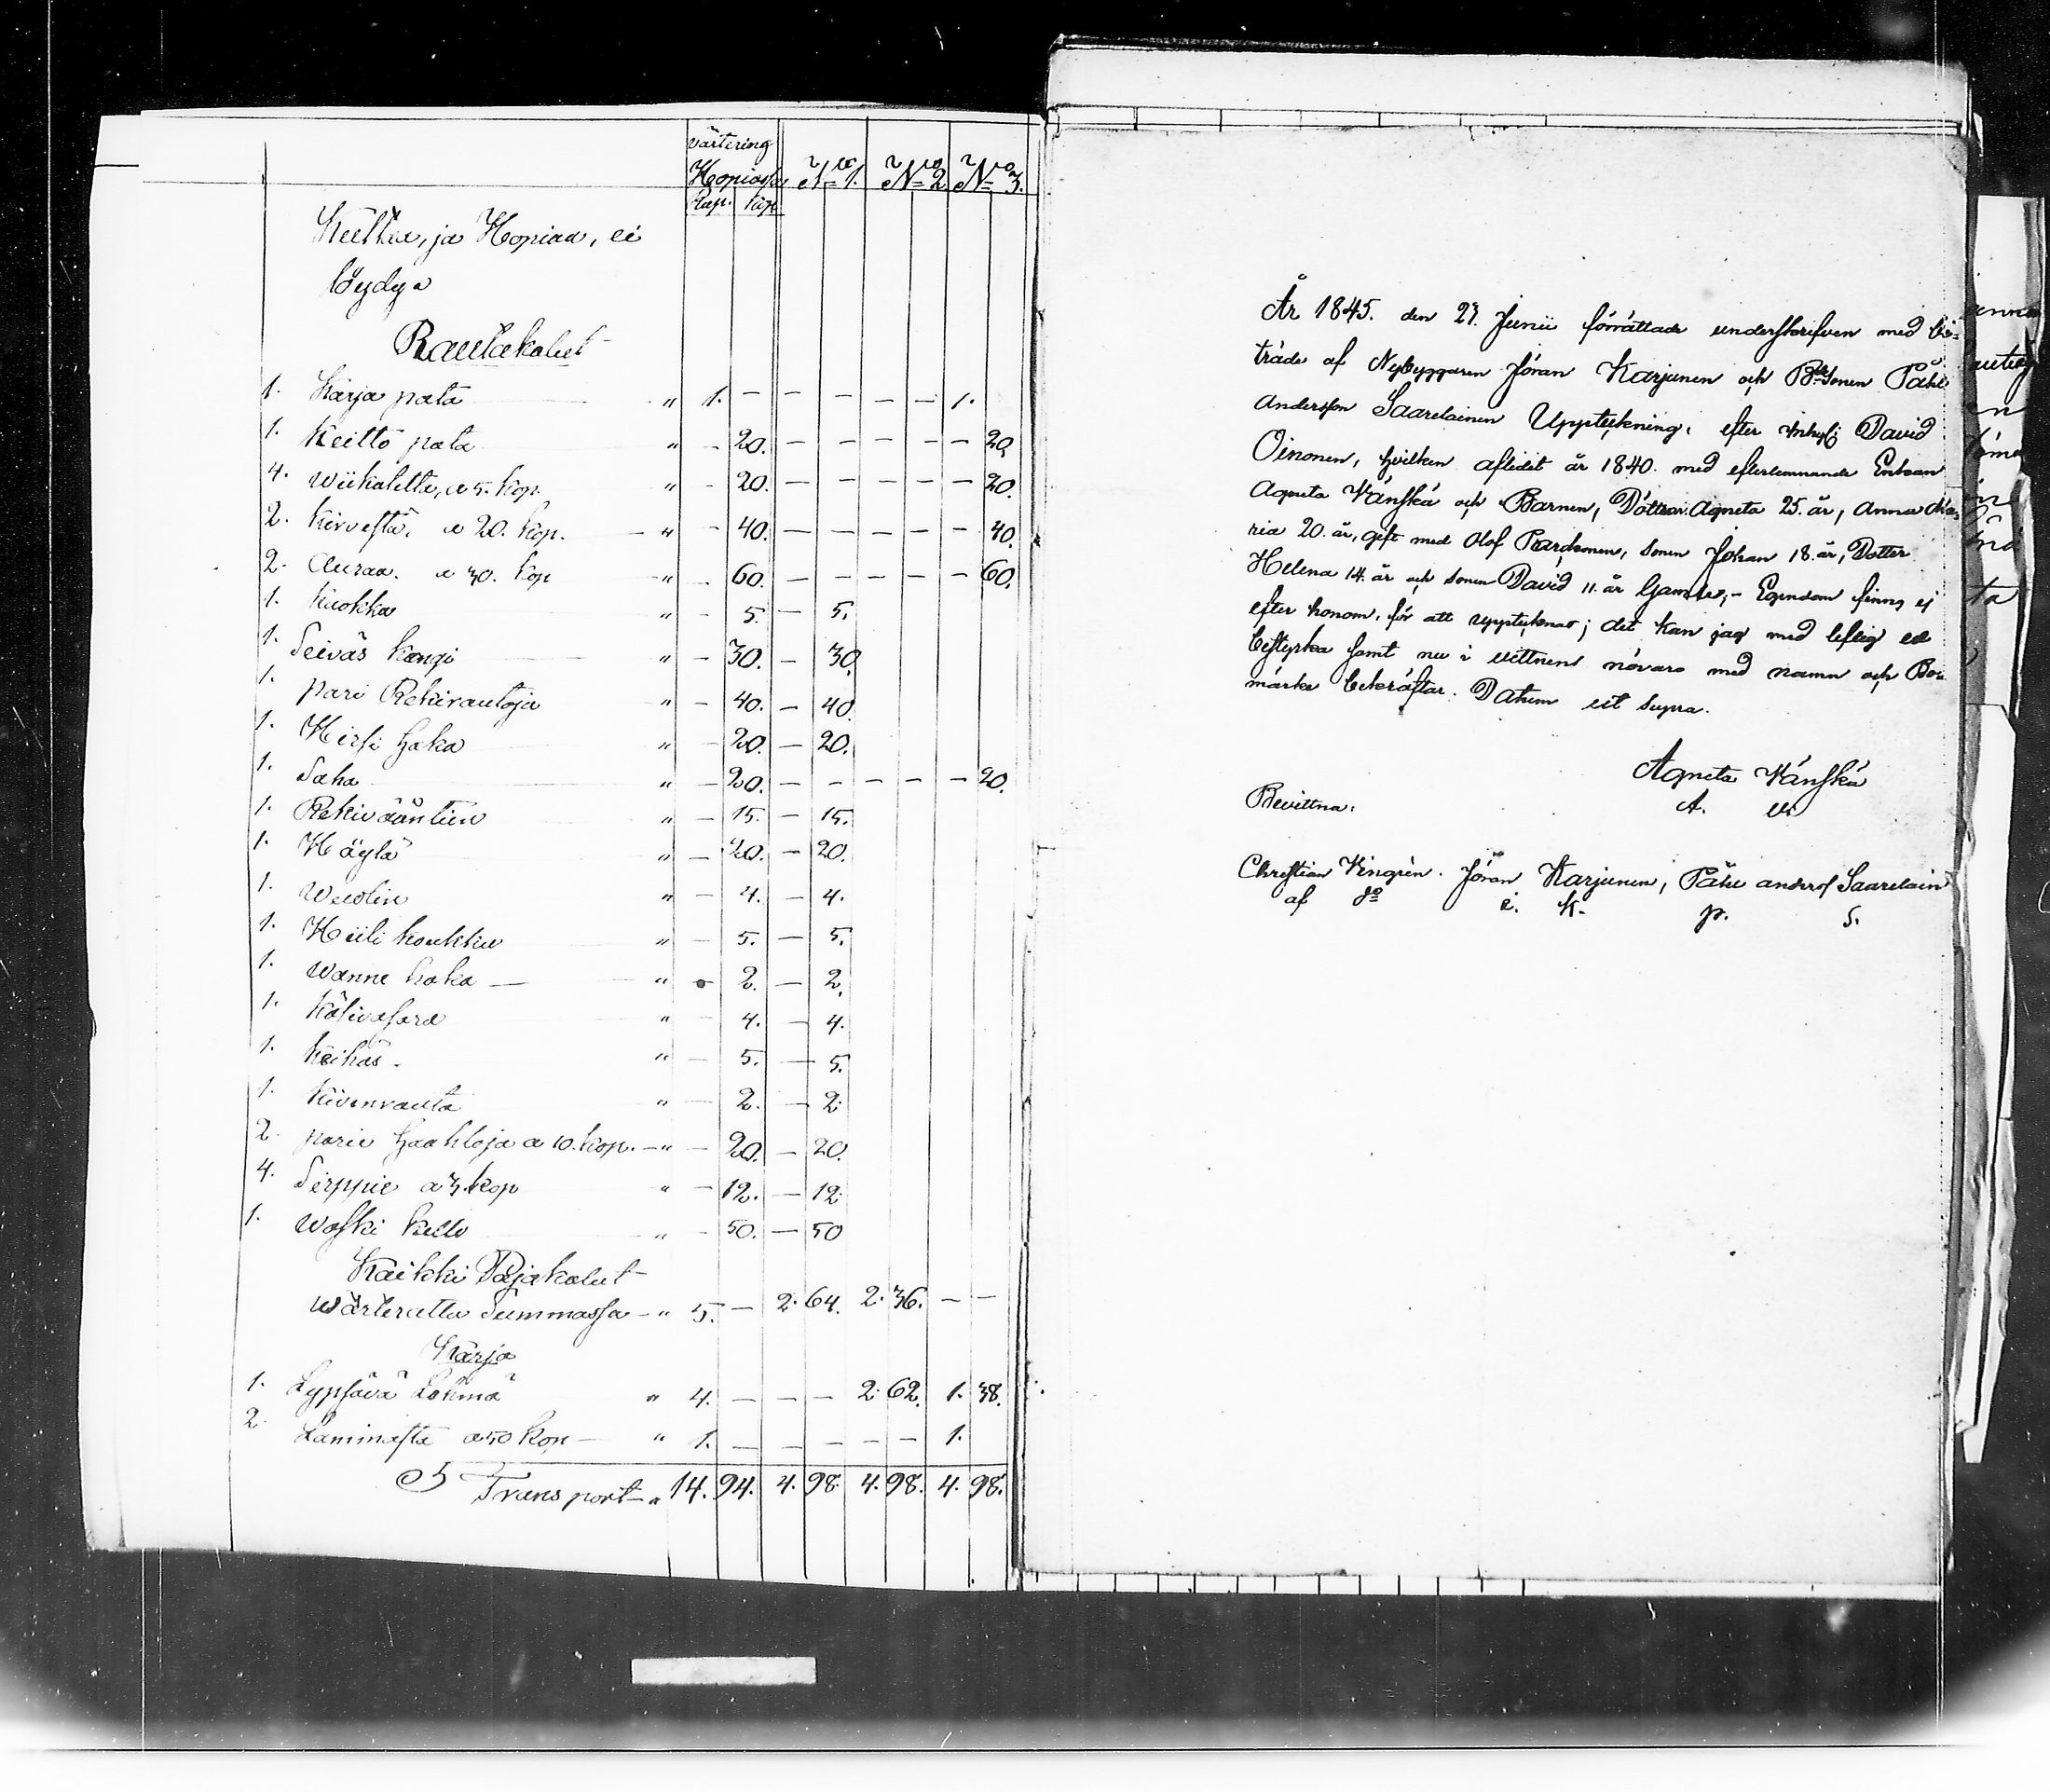 värtering
Hopiassa No 1. No 2 No 3.
Rup. kop
Kultaa, ja Hopiaa, ei
löydy
Rautakalut
1. Karja pata " 1. — — — — — 1.
1. Keitto pata " — 20. — — — — — 20
4. wiikatetta, a 5. kop. " — 20. — — — — — 20.
2. Kirvestä. a 20. kop. — " — 40. — — — — — 40.
2. Auraa. a 30. kop " — 60. — — — — — 60.
1. Kuokka " — 5. — 5.
1. Seiväs kangi " — 30. — 30
1. pari Rekirautoja " — 40. — 40
1. Hirsi haka " — 20. — 20.
1. Saha " — 20. — — — — — 20.
1. Rekiväntiin " — 15. — 15.
1. Höylä " — 20. — 20.
1. Weolin " — 4. — 4.
1. Hiili koukku " — 5. — 5.
1. Wanne haka — " — 2. — 2.
1. Kätivasara " — 4. — 4.
1. Keihäs. " — 5. — 5.
1. Kivenrauta " — 2. — 2.
2. paria haahloja a 10. kop. — " — 20. — 20.
4. Sirppie a 3. kop " — 12. — 12.
1. Waski kello " — 50. — 50
Kaikki Pajakalut
wärteratta Summassa — " 5. — 2. 64. 2. 36. — —
Karja
1. Lypsävä Lehmä " 4. — — — 2. 62. 1. 38.
2. Lammasta a 50 kop — " 1. — — — — — 1.
Transport — " 14. 94. 4. 98. 4. 98. 4. 98.
År 1845. den 27. Junii förrättade underskrifven med bi-
träde af Nybyggaren Jöran Karjunen och BdeSonen Påhl
Andersson Saarelainen Uppteckning, efter Inhys: David
Oinonen, hvilken aflidit år 1840. med efterlemnande Enkan
Agneta Wänskä och Barnen, Döttrar Agneta 25. år, Anna Ma-
ria 20. år, gift med Olof Pardsonen, Sonen Johan 18. år, Dotter
Helena 14. år och Sonen David 11. år Gamler; — Egendom finns ej
efter honom, för att upptecknas; det kan jag med liflig ed
bestyrka samt nu i vittnens nävaro med namn och Bo
märke bekräftar. Datum ut supra.
Agneta Wänskä
Bevittna: A. W.
Christian Wingrén. Jöran Karjunen, Påhl anderss Saarelain
af do i. K. p. S.